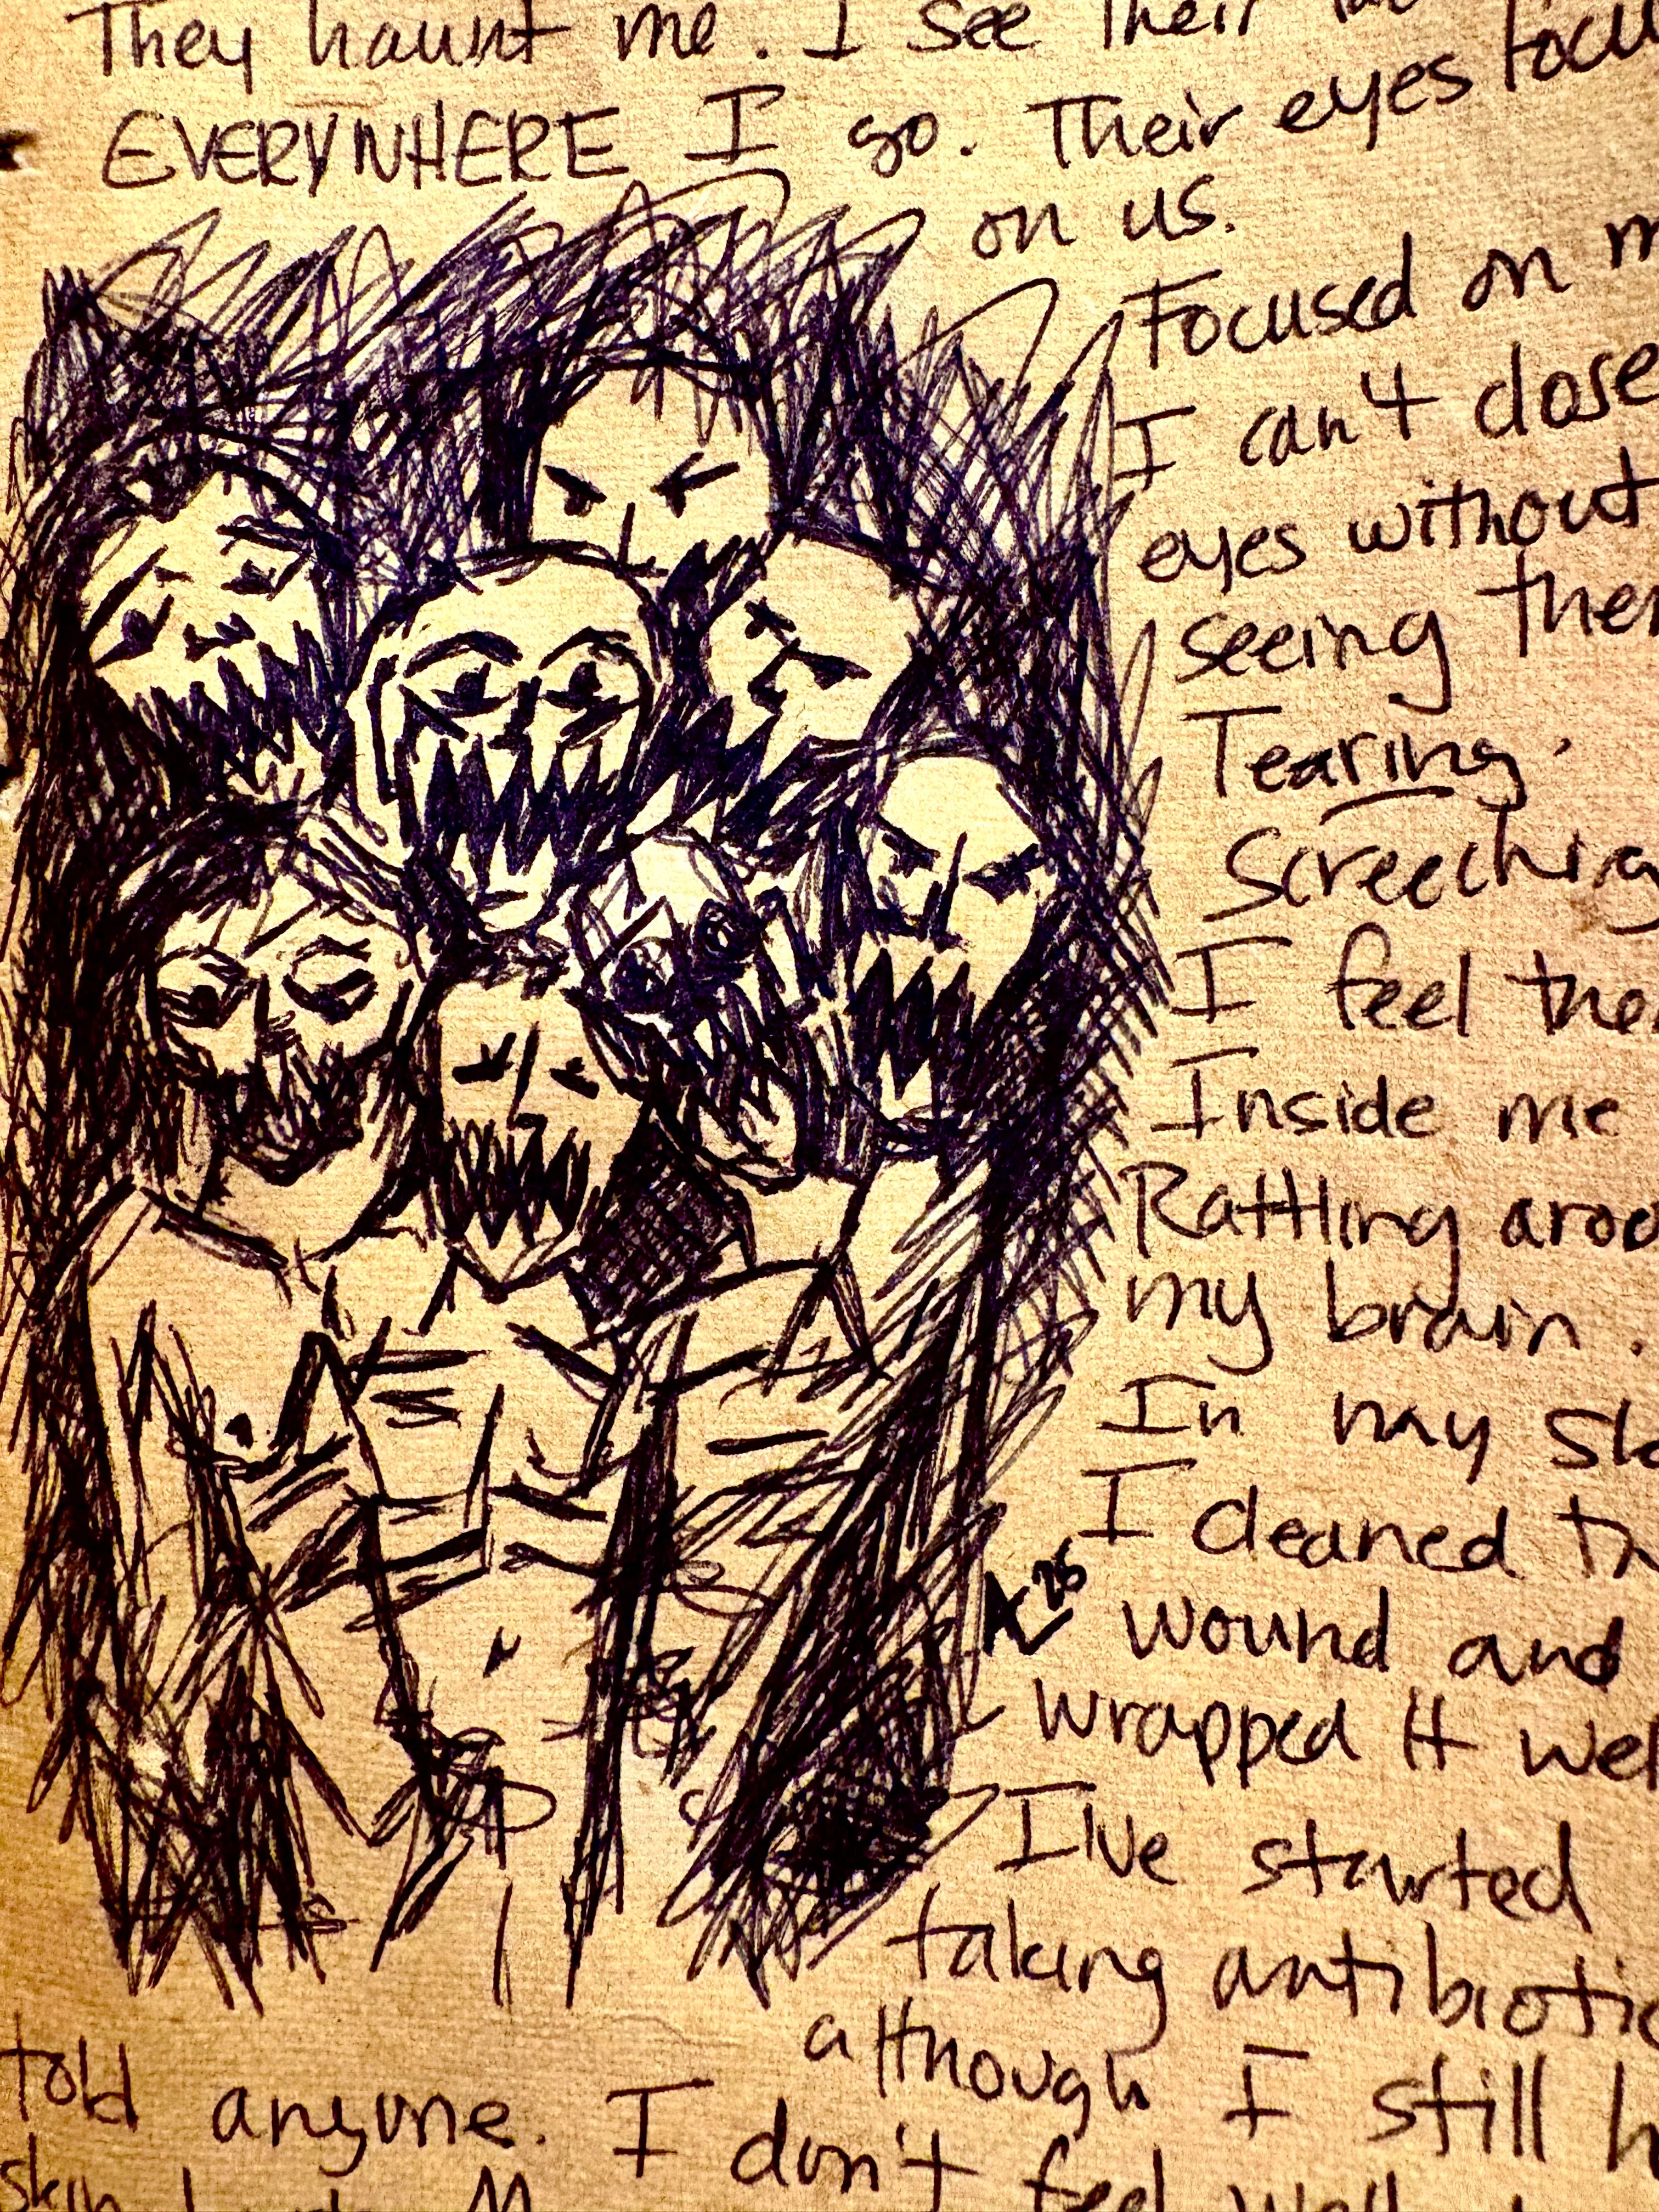 They haunt me. I see their
EVERYWHERE I go. Their eyes focu
on us.
Focused on m
I can't close
eyes without
seeing them
Tearing.
Screeching
I feel the
Inside me
Rattling arou
my brain.
In my sk
I cleaned th
wound and
wrapped it wel
I've started
taking antibiotic
although I still h
told anyone. I don't feel well
skin